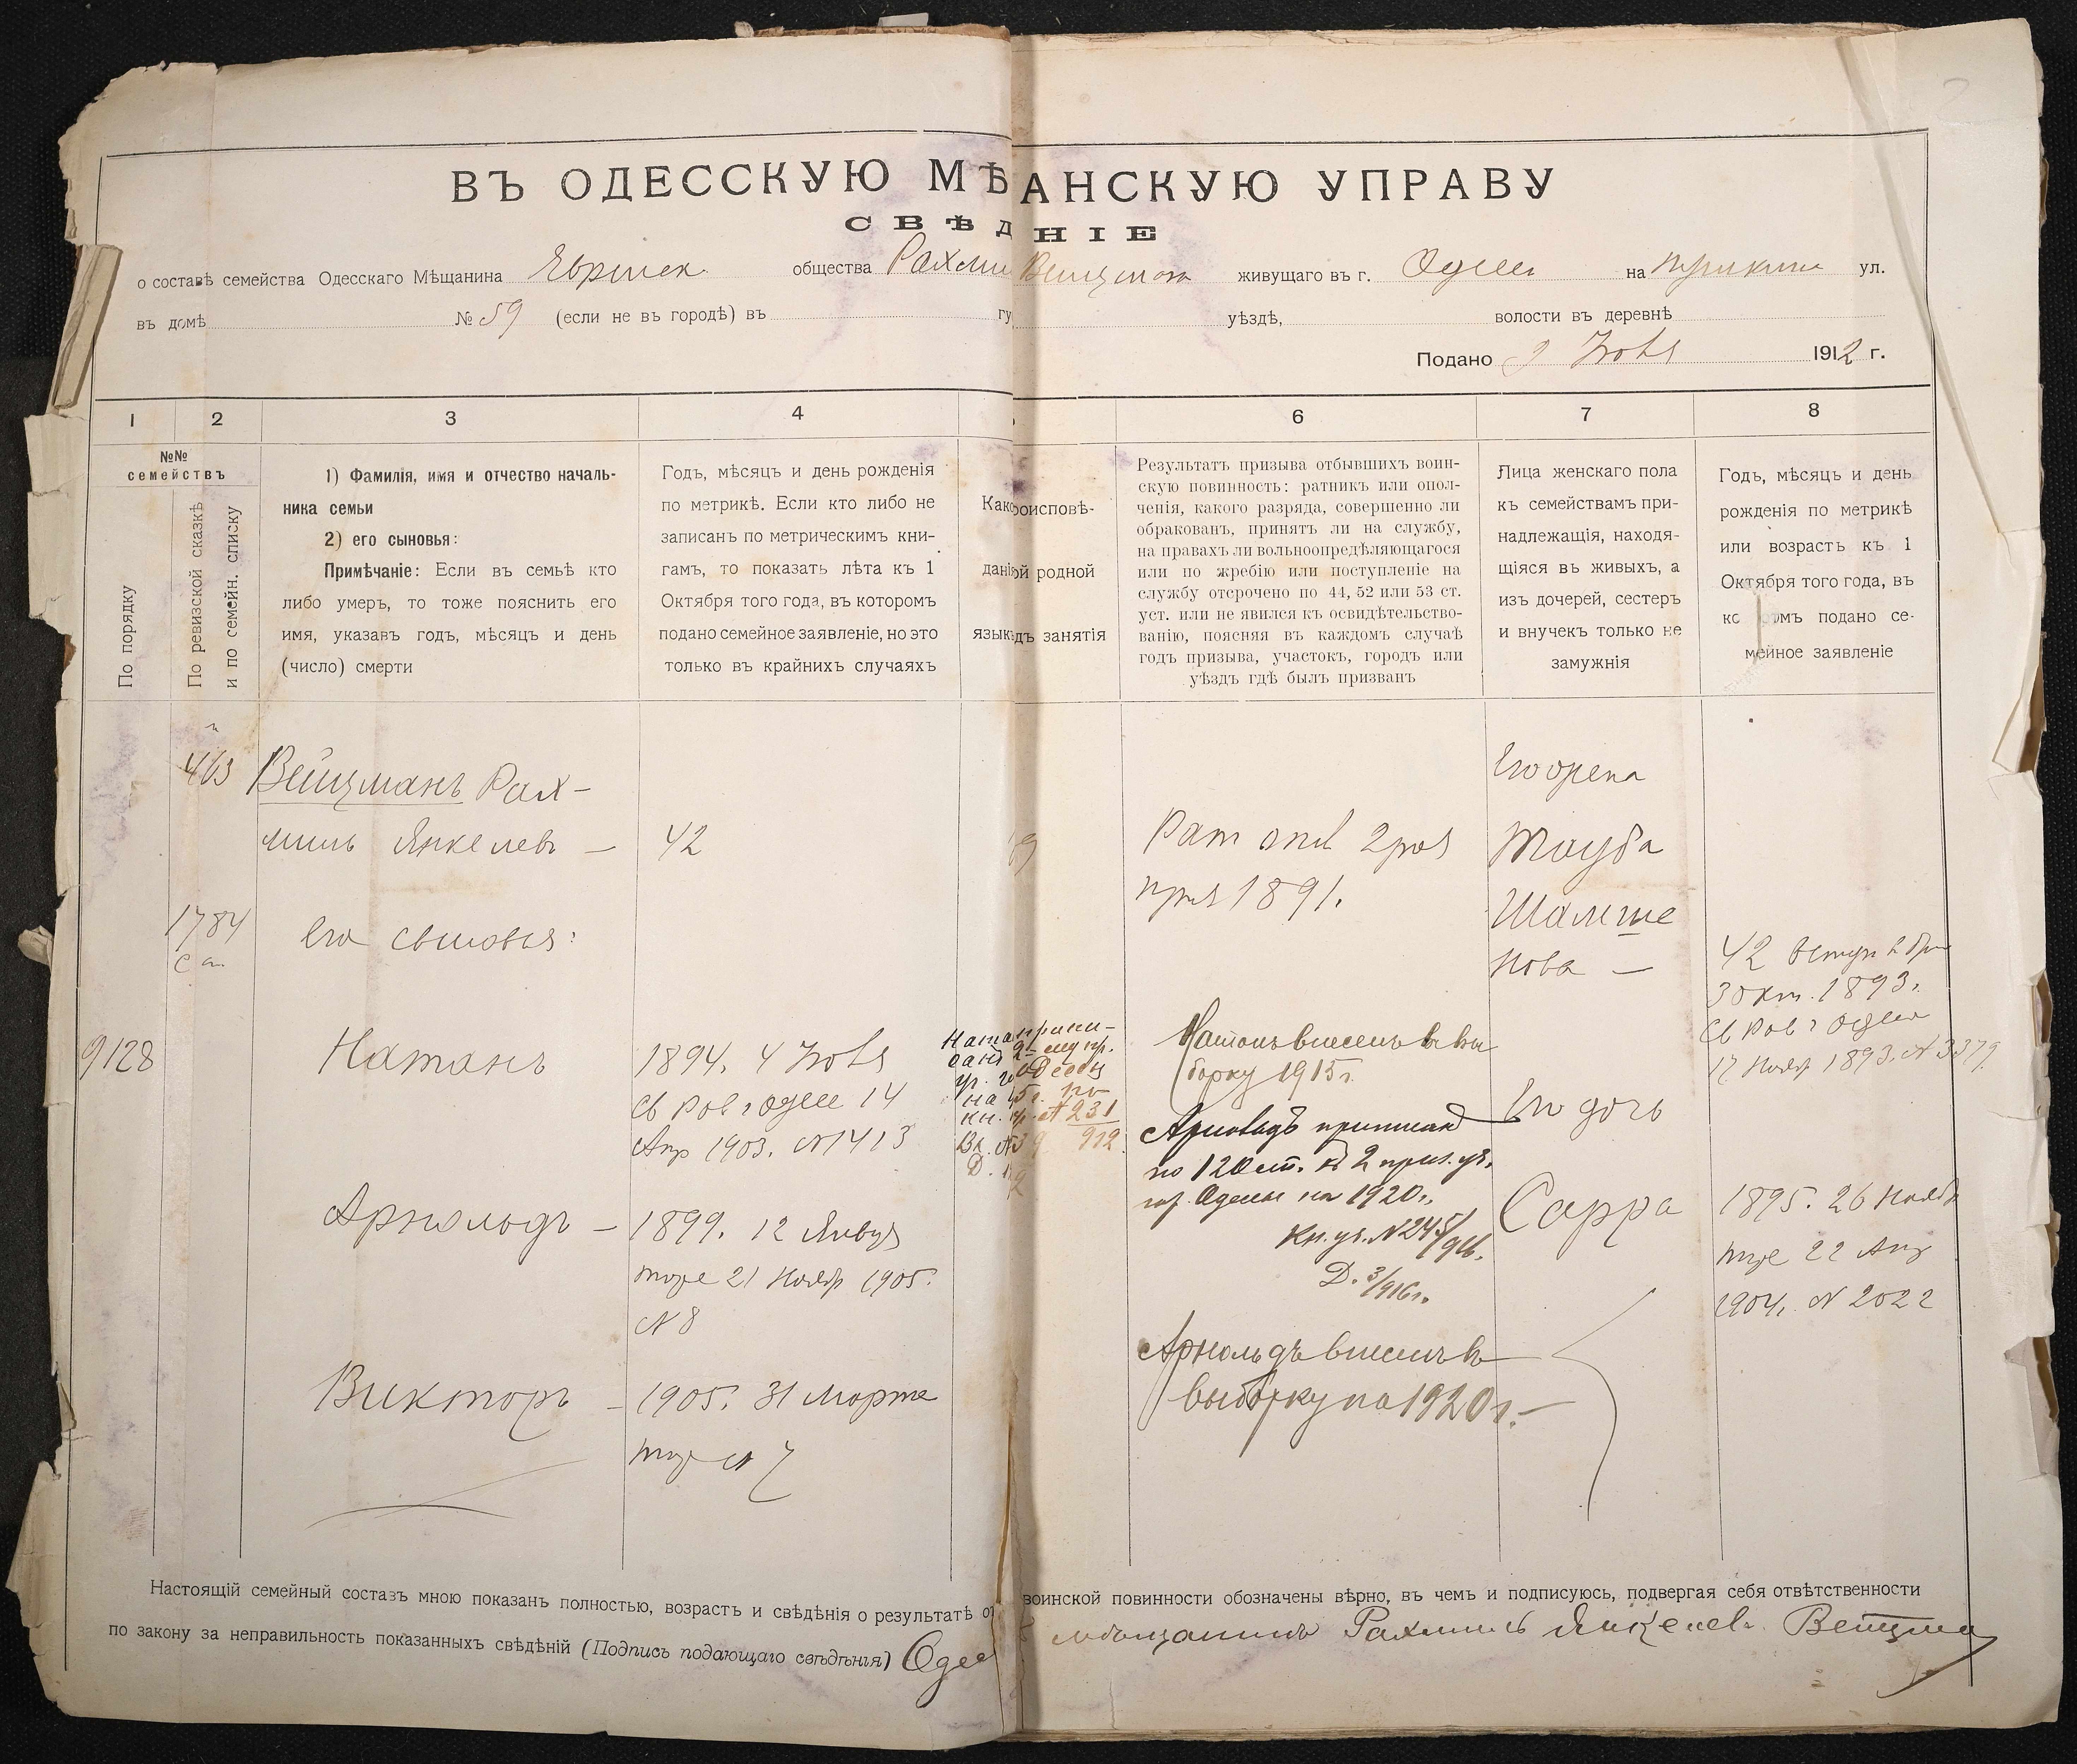 ВЪ ОДЕССКУЮ МѢ АНСКУЮ УПРАВУ
СВѢД НІЕ
о составѣ семейства Одесскаго Мѣщанина Еврейск. общества Рахми Вейцман живущаго въ г. Одессѣ на ул.
въ домѣ № 59 (если не въ городѣ) въ гу уѣздѣ, волости въ деревнѣ
Подано 1912 г.
1 2 3 4 6 7 8
№№ семействъ
По порядку
По ревизской сказкѣ
и по семейн. списку
1) Фамилія, имя и отчество началь-
ника семьи
2) его сыновья:
Примѣчаніе: Если въ семьѣ кто
либо умеръ, то тоже пояснить его
имя, указавъ годъ, мѣсяцъ и день
(число) смерти
Годъ, мѣсяцъ и день рожденія
по метрикѣ. Если кто либо не
записанъ по метрическимъ кни-
гамъ, то показать лѣта къ 1
Октября того года, въ которомъ
подано семейное заявленіе, но это
только въ крайнихъ случаяхъ
Како роисповѣ-
дані ой родной
язык дъ занятія
Результатъ призыва отбывшихъ воин-
скую повинность: ратникъ или опол-
ченія, какого разряда, совершенно ли
обракованъ, принятъ ли на службу,
на правахъ ли вольноопредѣляющагося
или по жребію или поступленіе на
службу отсрочено по 44, 52 или 53 ст.
уст. или не явился къ освидѣтельство-
ванію, поясняя въ каждомъ случаѣ
годъ призыва, участокъ, городъ или
уѣздъ гдѣ былъ призванъ
Лица женскаго пола
къ семействамъ при-
надлежащія, находя-
щіяся въ живыхъ, а
изъ дочерей, сестеръ
и внучекъ только не
замужнія
Годъ, мѣсяцъ и день
рожденія по метрикѣ
или возрастъ къ 1
Октября того года, въ
ко омъ подано се-
мейное заявленіе
463 Вейцманъ Рах-
миль Янкелевъ — 42
Рат опл 2 раз
1891.
Его жена
Тауба
Шалше
нова —
1784
его сыновья:
42
30кт. 1893.
Св Рав г Одессы
17 Нояб 1893. № 3379
9128 Натанъ
1894. 4
Св Рав г Одесс 14
Апр 1903. № 1413
Натан припи-
сан 2 му пр.
уч. г. Одессы
на 15 г. по
кн. уч. № 231
912
Натанъ внесенъ въ вы
борку 1915 г.
Арнольдъ приписан
по 120 ст. къ 2 приз. уч.
гор. Одессы на 1920 г.
Кн. уч. № 245/916.
Д. 3/916 г.
Его дочь
Сарра
1895. 26 Нояб
тоже 22 Апр
1904. № 2022
Арнольдъ —
1899. 12 Января
тоже 21 Нояб 1905.
№ 8
Арнольдъ внесенъ въ
выборку на 1920 г. —
Викторъ —
1905. 31 Марта
тоже № 7
Настоящій семейный составъ мною показанъ полностью, возрастъ и свѣдѣнія о результатѣ от воинской повинности обозначены вѣрно, въ чемъ и подписуюсь, подвергая себя отвѣтственности
по закону за неправильность показанныхъ свѣдѣній (Подпись подающаго свѣдѣнія) Одес мѣщанинъ Рахмиль Янкелев. Вейцман